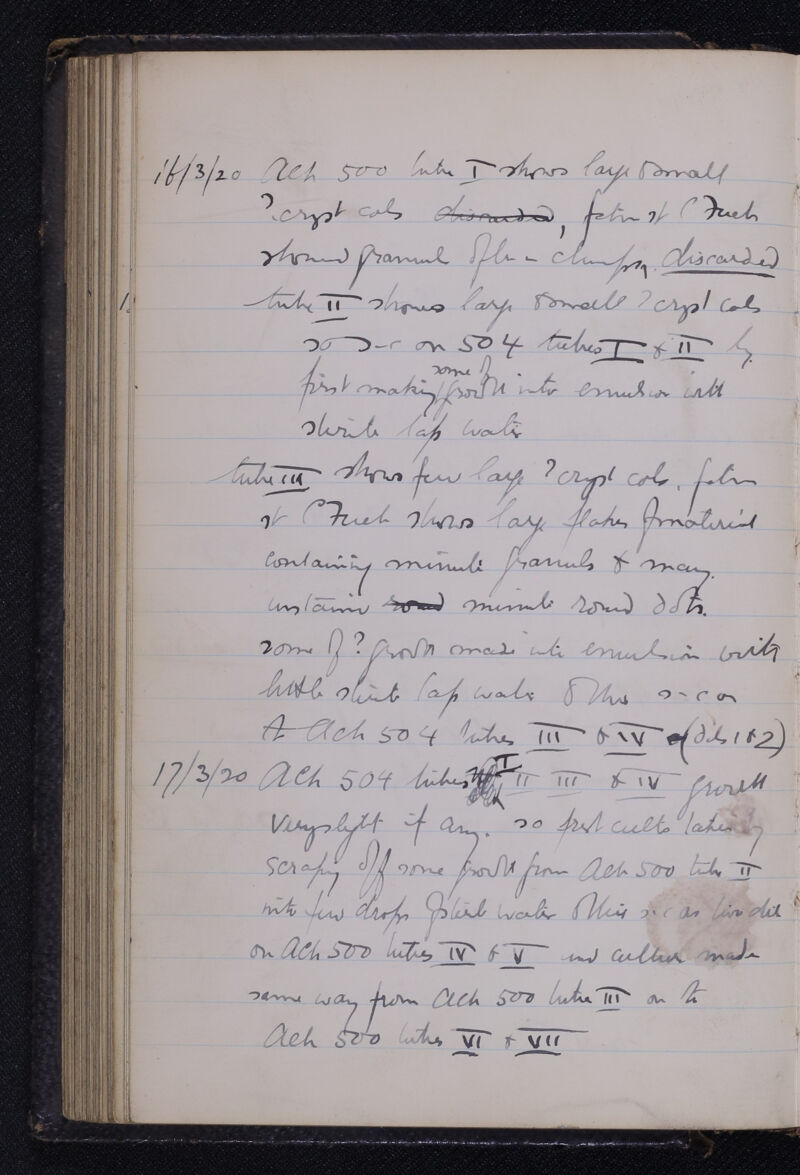 16/3/20 Ach 500 tube I shows large & small
? cryst cols discarded, film st C Fuch
showed granules often in clumps, discarded
1. tube II shows large & small ? cryst cols
so s-c on 504 tubes I & II by
first making some of growth into emulsion with
sterile tap water
tube III shows few large ? cryst cols. film
st C Fuch shows large flakes of material
containing minute granules & many
unstained round minute round dots.
some of ? growth made into emulsion with
little sterile tap water & this s-c on
to Ach 504 tubes III & IV (dils 1 & 2)
17/3/20 Ach 504 tubes I II III & IV growth
very slight if any. so first cults taken by
scraping off some growth from Ach 500 tube II
into few drops of sterile water & this s-c as two dil
on Ach 500 tubes IV & V and culture made
same way from Ach 500 tube III on to
Ach 500 tubes VI & VII